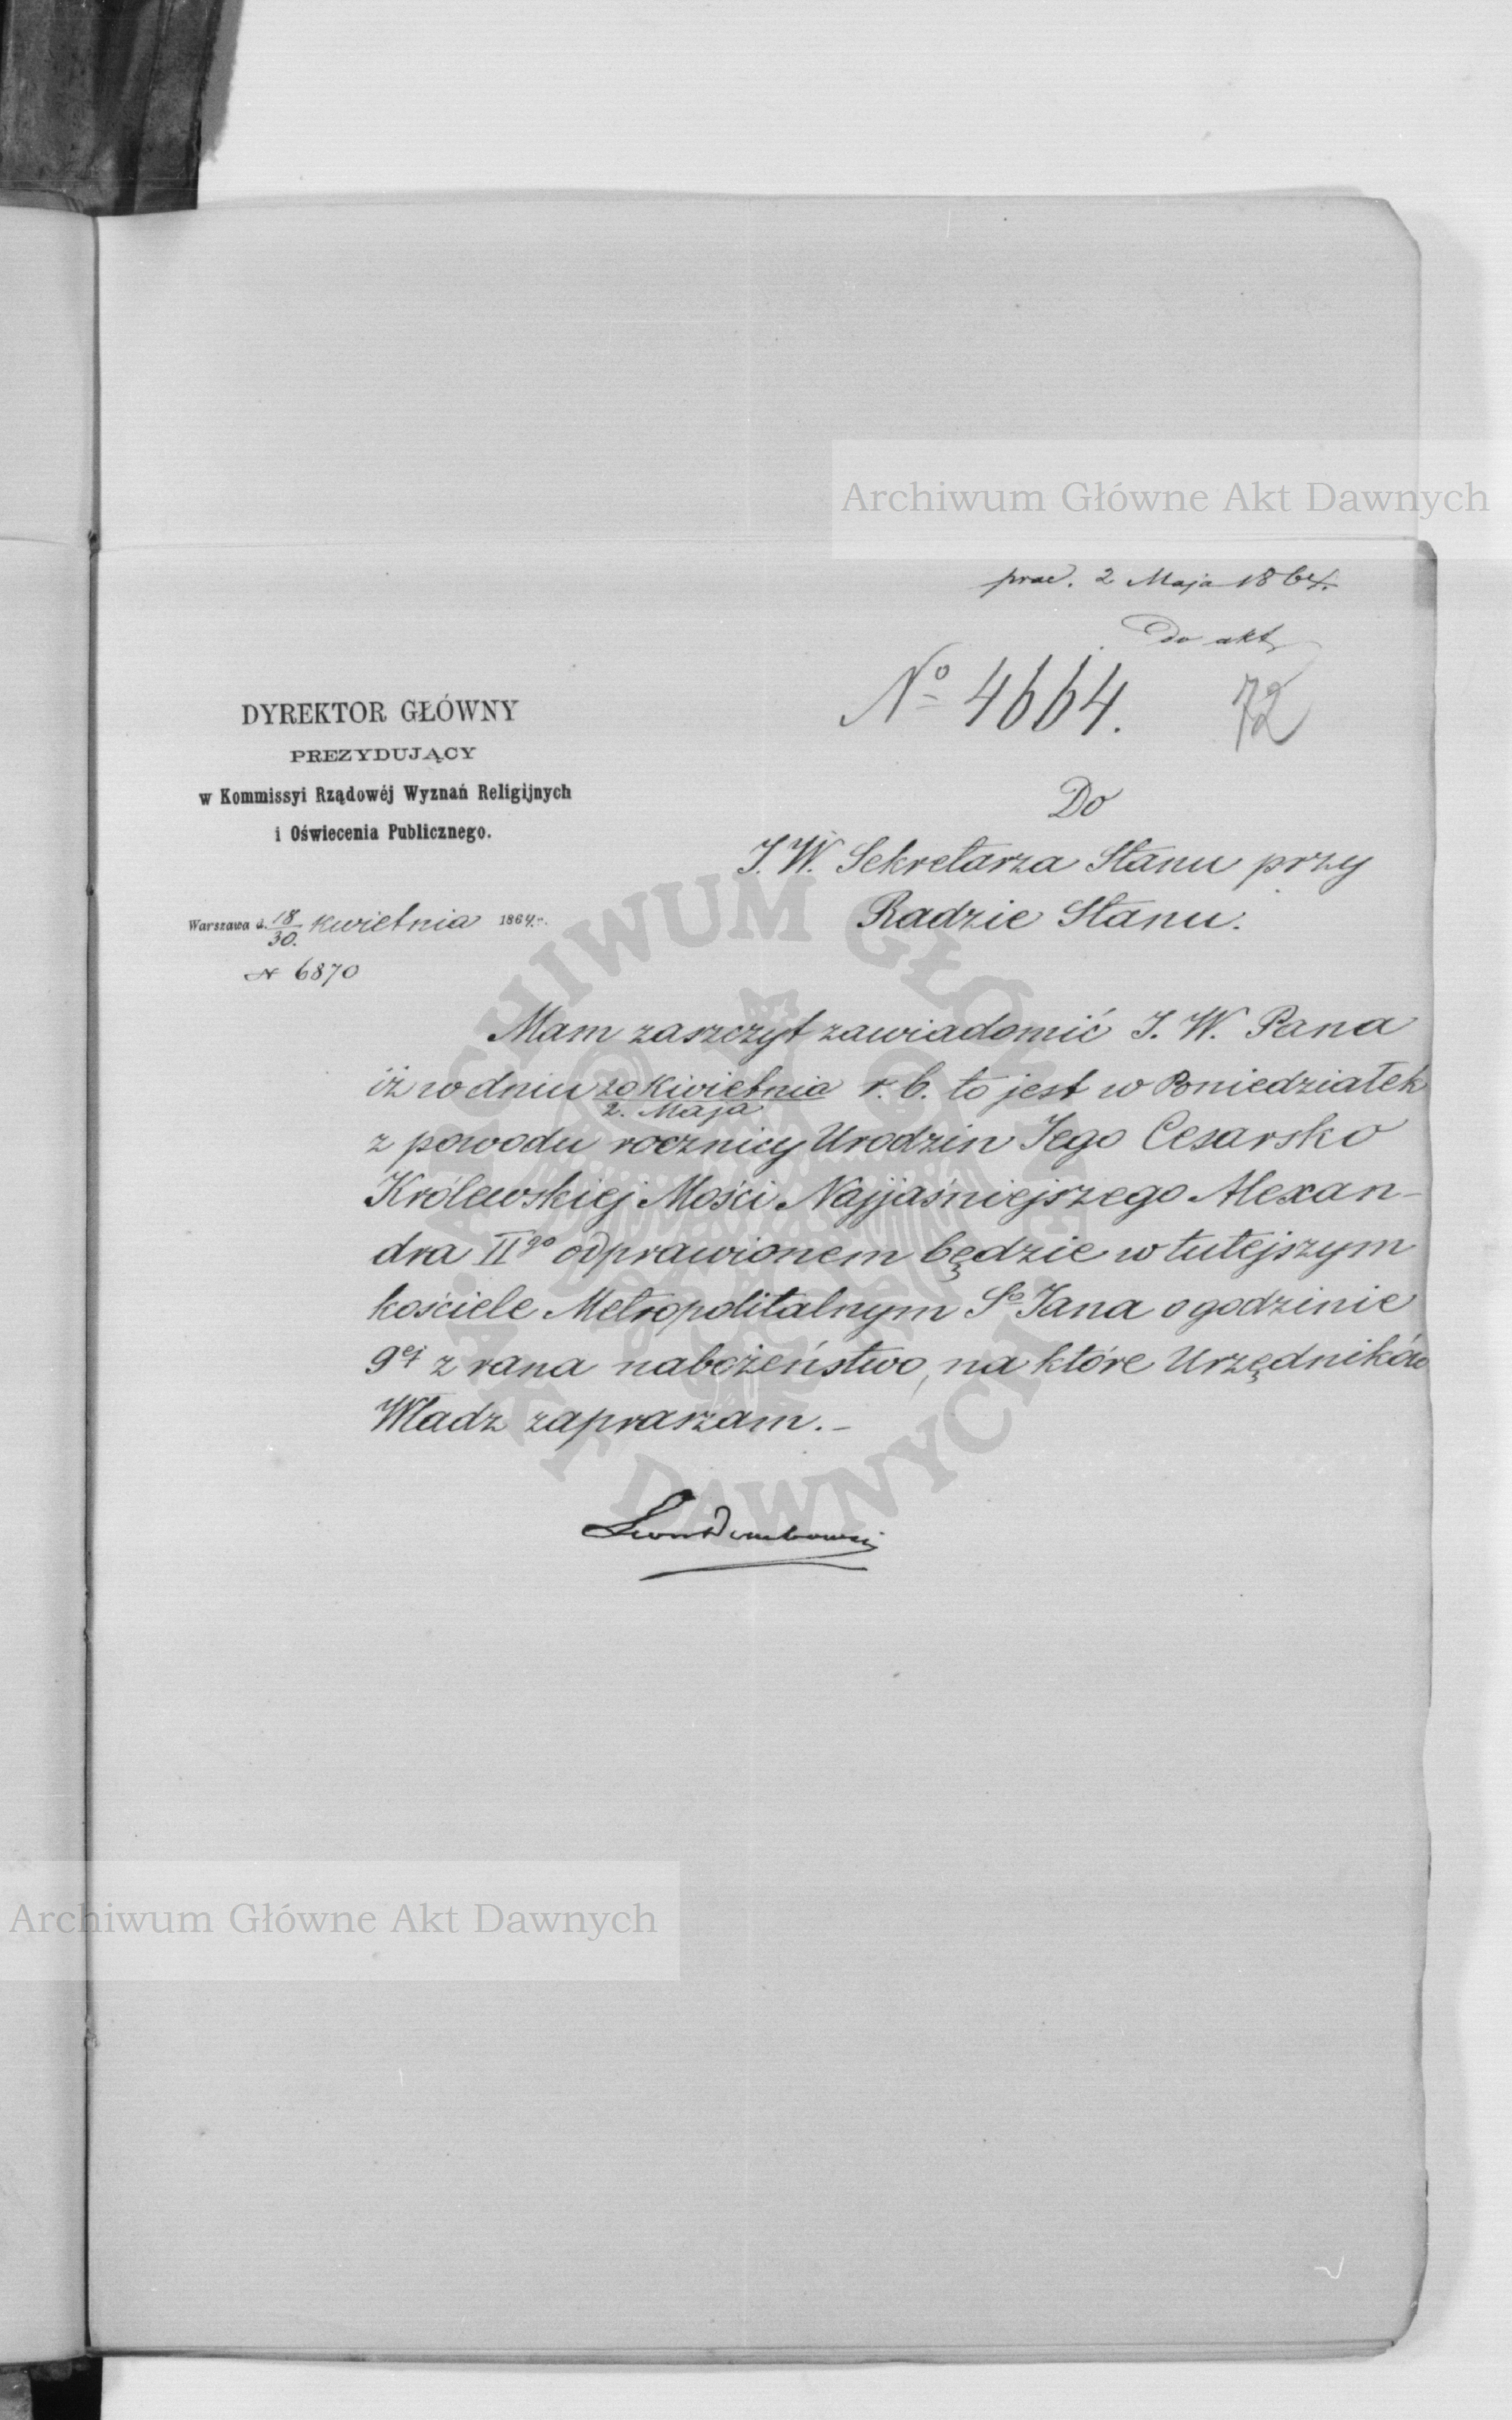 Archiwum Główne Akt Dawnych
prae. 2 Maja 1864.
Do akt
No 4664. 72
DYREKTOR GŁÓWNY
PREZYDUJĄCY
w Kommissyi Rządowéj Wyznań Religijnych
i Oświecenia Publicznego.
Warszawa d. 18/30. Kwietnia 1864 r.
N 6870
Do
J. W. Sekretarza Stanu przy
Radzie Stanu.
Mam zaszczyt zawiadomić J. W. Pana
iż w dniu 20 Kwietnia / 2. Maja r. b. to jest w Poniedziałek
z powodu rocznicy Urodzin Jego Cesarsko
Królewskiej Mości Najjaśniejszego Alexan-
dra IIgo odprawionem będzie w tutejszym
kościele Metropolitalnym So Jana o godzinie
9ej z rana nabożeństwo, na które Urzędników
Władz zapraszam.-
Leon Dembowski
ARCHIWUM GŁÓWNE AKT DAWNYCH
Archiwum Główne Akt Dawnych